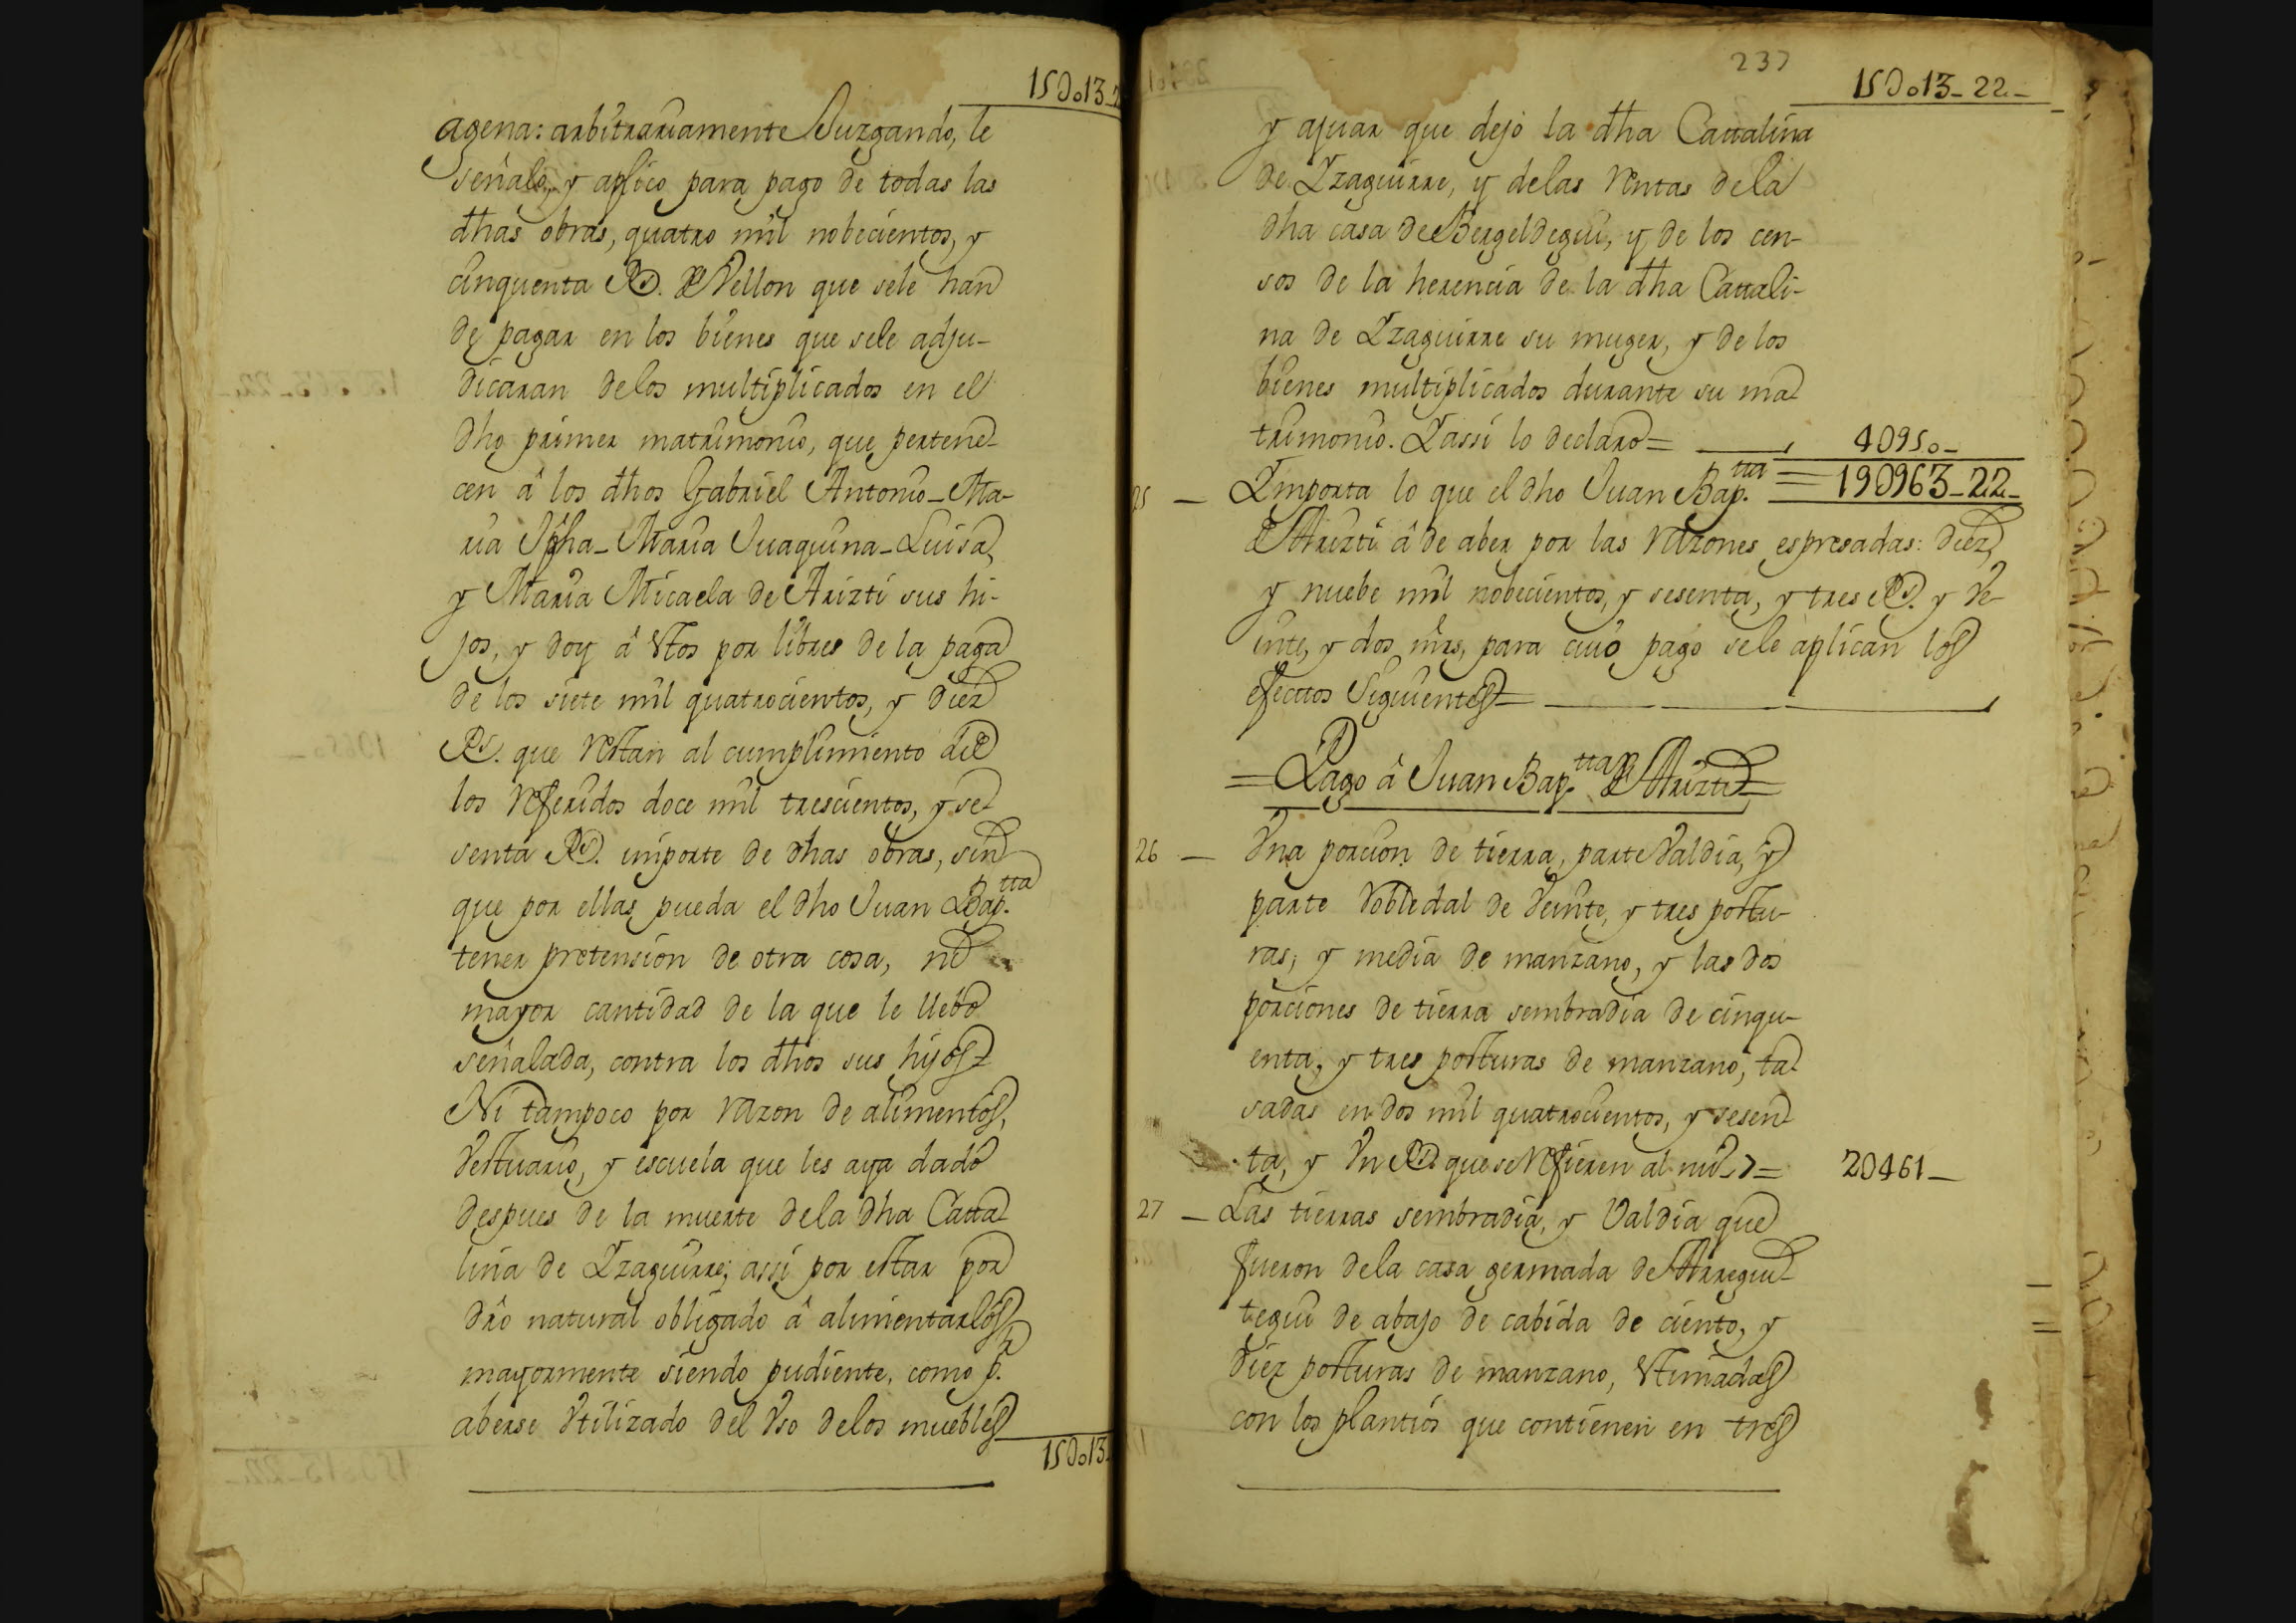 15D013-2
agena: arbitrariamente Juzgando, le
señalo, y aplico para pago de todas las
dhas obras, quatro mil nobecientos, y
cinquenta Rs. de Vellon que sele han
de pagar en los bienes que sele adju-
dicaran delos multiplicados en el
dho primer matrimonio, que pertene-
cen â los dhos Gabriel Antonio-Ma-
ria Jpha-Maria Juaquina-Luisa,
y Maria Micaela de Arizti sus hi-
jos, y doy â estos por libres de la paga
de los siete mil quatrocientos, y diez
Rs. que restan al cumplimiento de
los referidos doce mil trescientos, y se-
senta Rs. importe de dhas obras, sin
que por ellas pueda el dho Juan Bap.tta
tener pretension de otra cosa, ni
mayor cantidad de la que le llebo
señalada, contra los dhos sus hijos=
Ni tampoco por razon de alimentos,
Vestuario, y escuela que les aya dado
despues de la muerte dela dha Catta-
lina de Yzaguirre; assi por estar por
dro natural obligado â alimentarlos,
mayormente siendo pudiente, como p.r
aberse Vtilizado del Vso delos muebles
15D013-
237
15D013-22-
y ajuar que dejo la dha Cattalina
de Yzaguirre, y delas rentas dela
dha casa de Bergeldegui, y de los cen-
sos de la herencia de la dha Cattali-
na de Yzaguirre su muger, y de los
bienes multiplicados durante su ma-
trimonio. Yassi lo declaro= 4D950-
25 - Ymporta lo que el dho Juan Bap.tta = 19D963-22-
de Arizti â de aber por las razones espresadas: diez,
y nuebe mil nobecientos, y sesenta, y tres Rs. y Ve-
inte, y dos mrs, para cuio pago sele aplican los
efecttos Siguientes=
=Pago â Juan Bap.tta de Arizti=
26 - Vna porcion de tierra, parte Valdia, y
parte robledal de Veinte, y tres postu-
ras, y media de manzano, y las dos
porciones de tierra sembradia de cinqu-
enta, y tres posturas de manzano, ta-
sadas en dos mil quatrocientos, y sesen-
ta, y Vn Rs que se refieren al nu.o 7= 2D461-
27 - Las tierras sembradia, y Valdia que
fueron dela casa germada de Arregui-
tegui de abajo de cabida de ciento, y
diez posturas de manzano, estimadas
con los plantios que contienen en tres